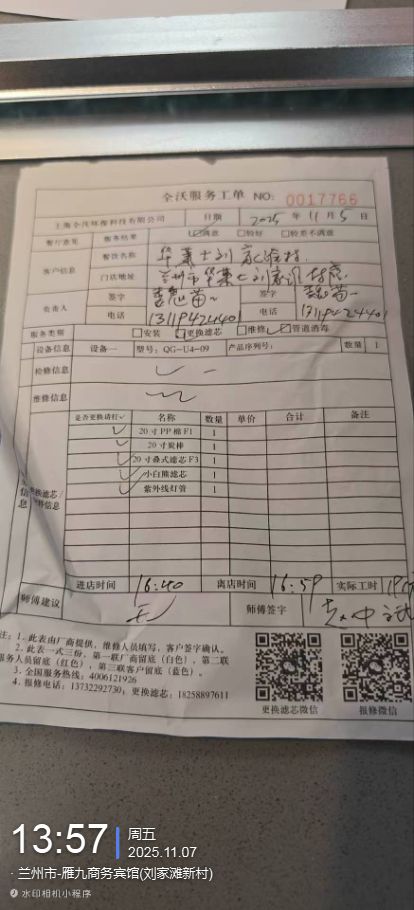 全沃服务工单 NO: 0017766
上海全沃环保科技有限公司 日期 2025 年 11 月 5 日
餐厅意见 服务结果 ☑满意 □较好 □较差不满意
客户信息 餐饮名称 华莱士刘家滩村
门店地址 兰州市华莱士刘家滩村店
负责人 签字 签字
电话 13119424401 电话 13119424401
服务类别 □安装 ☑更换滤芯 □维修 ☑管道消毒
设备信息 设备一 型号: QG-U4-09 产品序列号: 数量 1
检修信息
维修信息
更换滤芯/耗料信息 是否更换请打✓ 名称 数量 单价 合计 备注
✓ 20寸PP棉F1 1
✓ 20寸炭棒 1
✓ 20寸叠式滤芯F3 1
✓ 小白熊滤芯 1
✓ 紫外线灯管 1
进店时间 16:40 离店时间 16:59 实际工时
师傅建议 无 师傅签字
注: 1. 此表由厂商提供，维修人员填写，客户签字确认。
2. 此表一式三份，第一联厂商留底（白色），第二联
服务人员留底（红色），第三联客户留底（蓝色）。
3. 全国服务热线: 4006121926
4. 报修电话: 13732292730; 更换滤芯: 18258897611
更换滤芯微信 报修微信
13:57 周五
2025.11.07
· 兰州市-雁九商务宾馆(刘家滩新村)
水印相机小程序